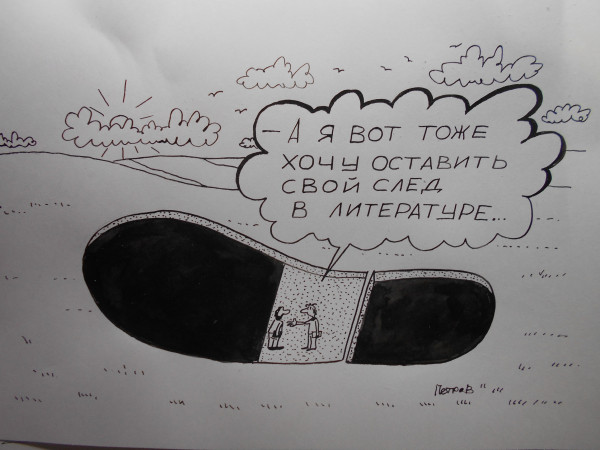 — А Я ВОТ ТОЖЕ
ХОЧУ ОСТАВИТЬ
СВОЙ СЛЕД
В ЛИТЕРАТУРЕ...